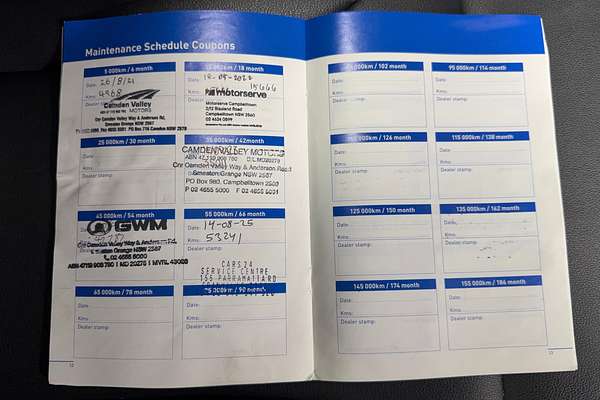 Maintenance Schedule Coupons
5 000km / 6 month
Date: 26/8/21
Kms: 4968
Camden Valley
MOTORS
Cnr Camden Valley Way & Anderson Rd,
Smeaton Grange NSW 2567
PO Box 714 Camden NSW 2570
/ 18 month
Date:
15666
motorserve
Motorserve Campbelltown
2/12 Blaxland Road
Campbelltown NSW 2560
02 4626 0599
25 000km / 30 month
Date:
Kms:
Dealer stamp:
35 000km / 42month
CAMDEN VALLEY MOTORS
ABN 47 119 908 780
Cnr Camden Valley Way & Anderson Road
Smeaton Grange NSW 2567
PO Box 980, Campbelltown 2560
P 02 4655 5000 F 02 4655 5001
45 000km / 54 month
GWM
Cnr Camden Valley Way & Anderson Rd,
Smeaton Grange NSW 2567
02 4655 5000
ABN 47119 908 780 | MD 20278 | MVRL 43028
55 000km / 66 month
Date: 14-08-25
Kms: 53241
Dealer stamp:
CARS24
SERVICE CENTRE
155 PARRAMATTA RD
65 000km / 78 month
Date:
Kms:
Dealer stamp:
75 000km / 90 month
Date:
Kms:
Dealer stamp:
12
/ 102 month
Date:
Kms:
Dealer stamp:
95 000km / 114 month
Date:
Kms:
Dealer stamp:
/ 126 month
Date:
Kms:
Dealer stamp:
115 000km / 138 month
Date:
Kms:
Dealer stamp:
125 000km / 150 month
Date:
Kms:
Dealer stamp:
135 000km / 162 month
Date:
Kms:
Dealer stamp:
145 000km / 174 month
Date:
Kms:
Dealer stamp:
155 000km / 186 month
Date:
Kms:
Dealer stamp:
13